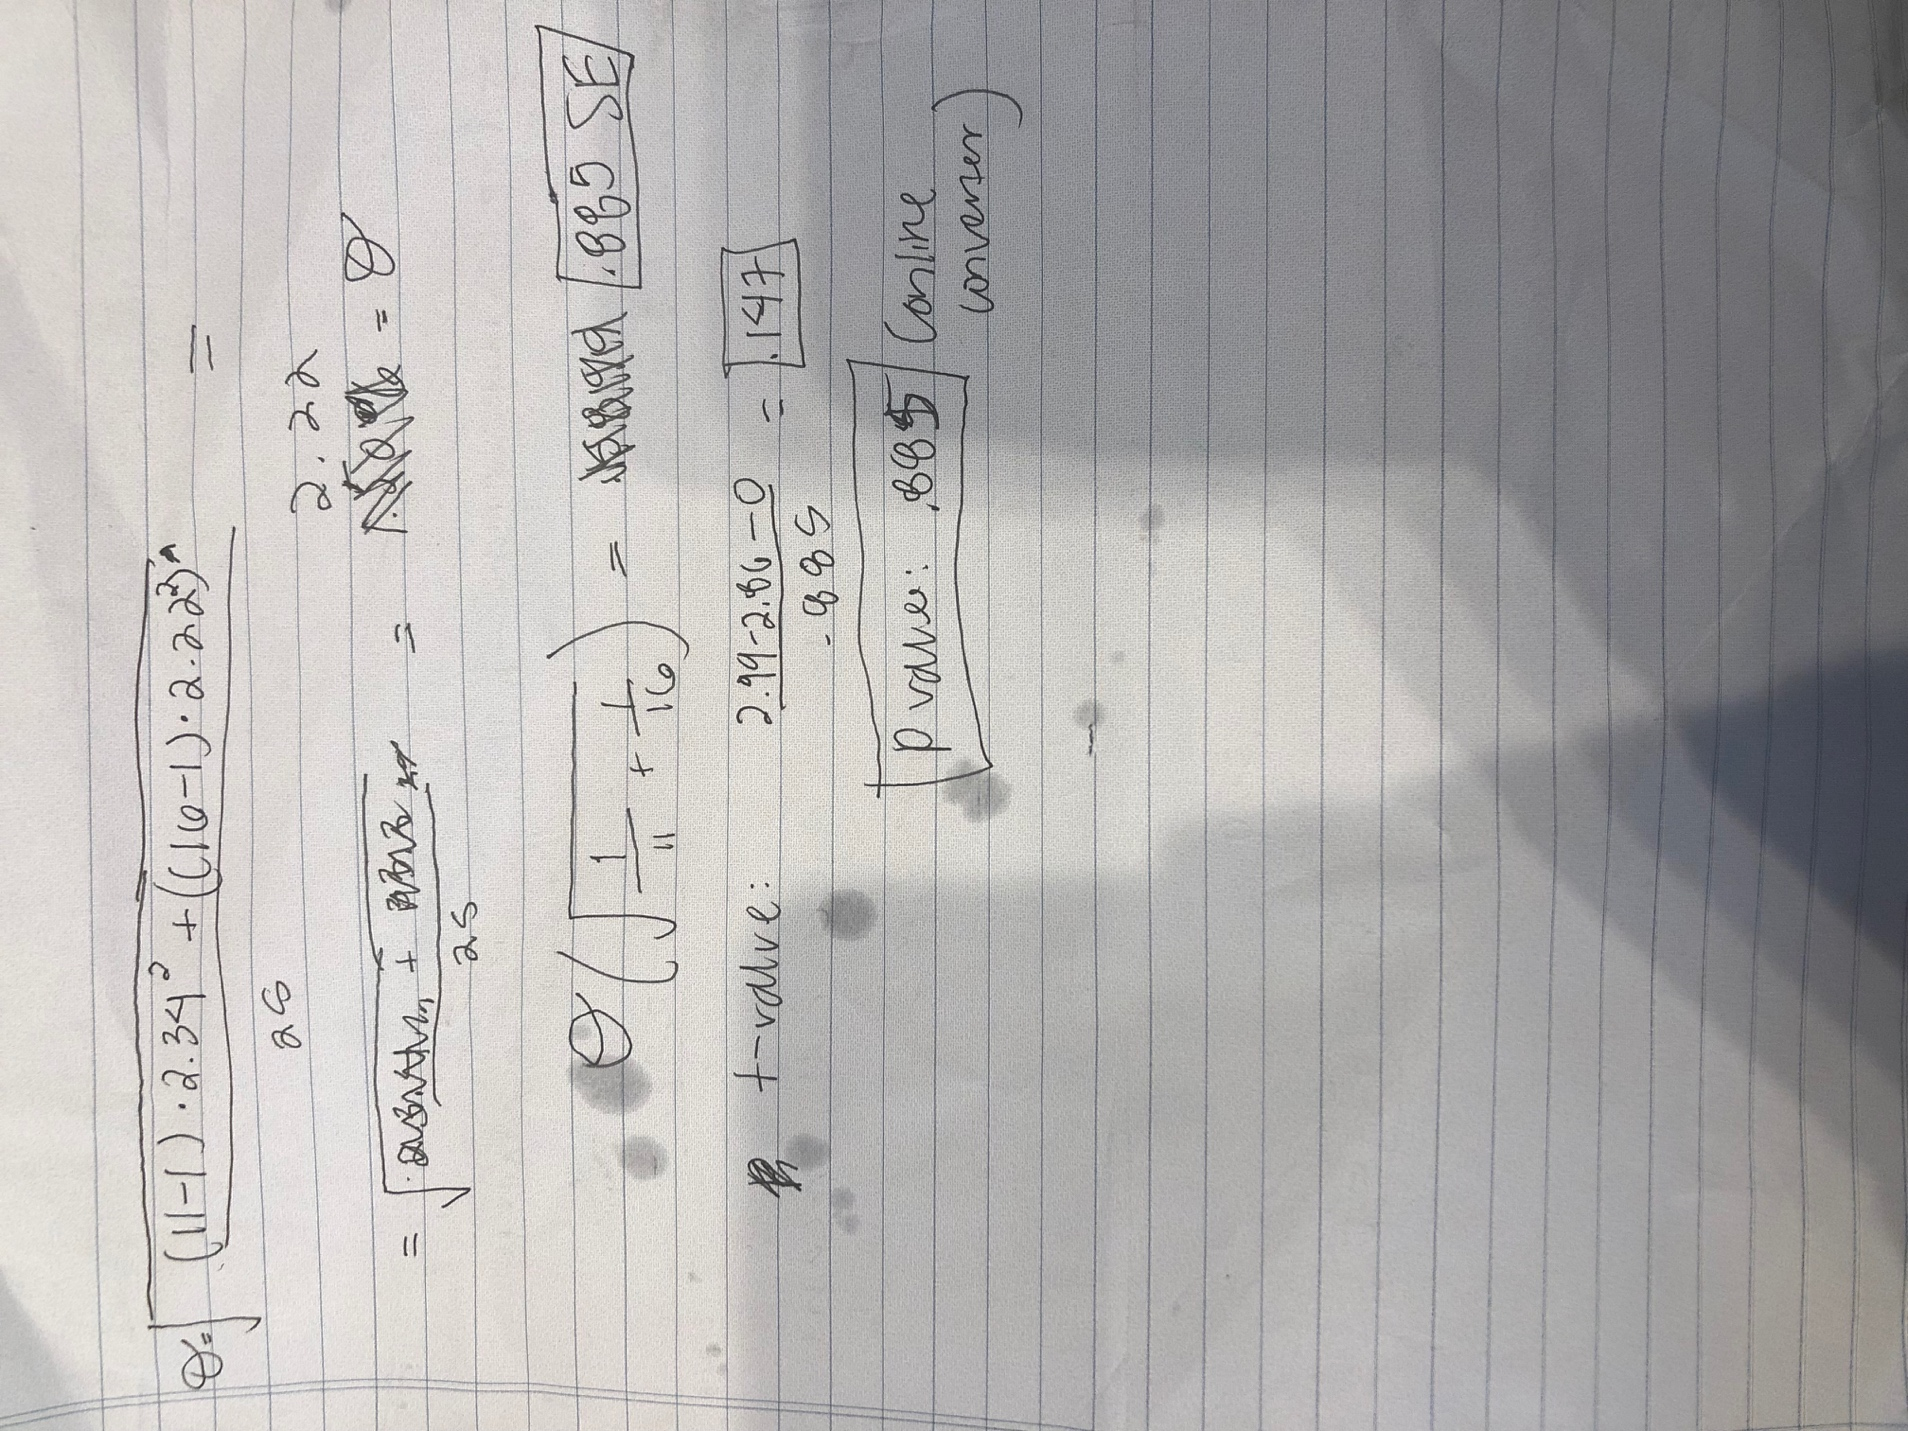 θ = √ (11-1) · 2.34² + ((16-1) · 2.22²) =
25
2.22
= √ + = = θ
25
θ (√ 1/11 + 1/16) = .885 SE
t-value: 2.99-2.86-0 / .885 = .147
p value: .885 (online
converter)